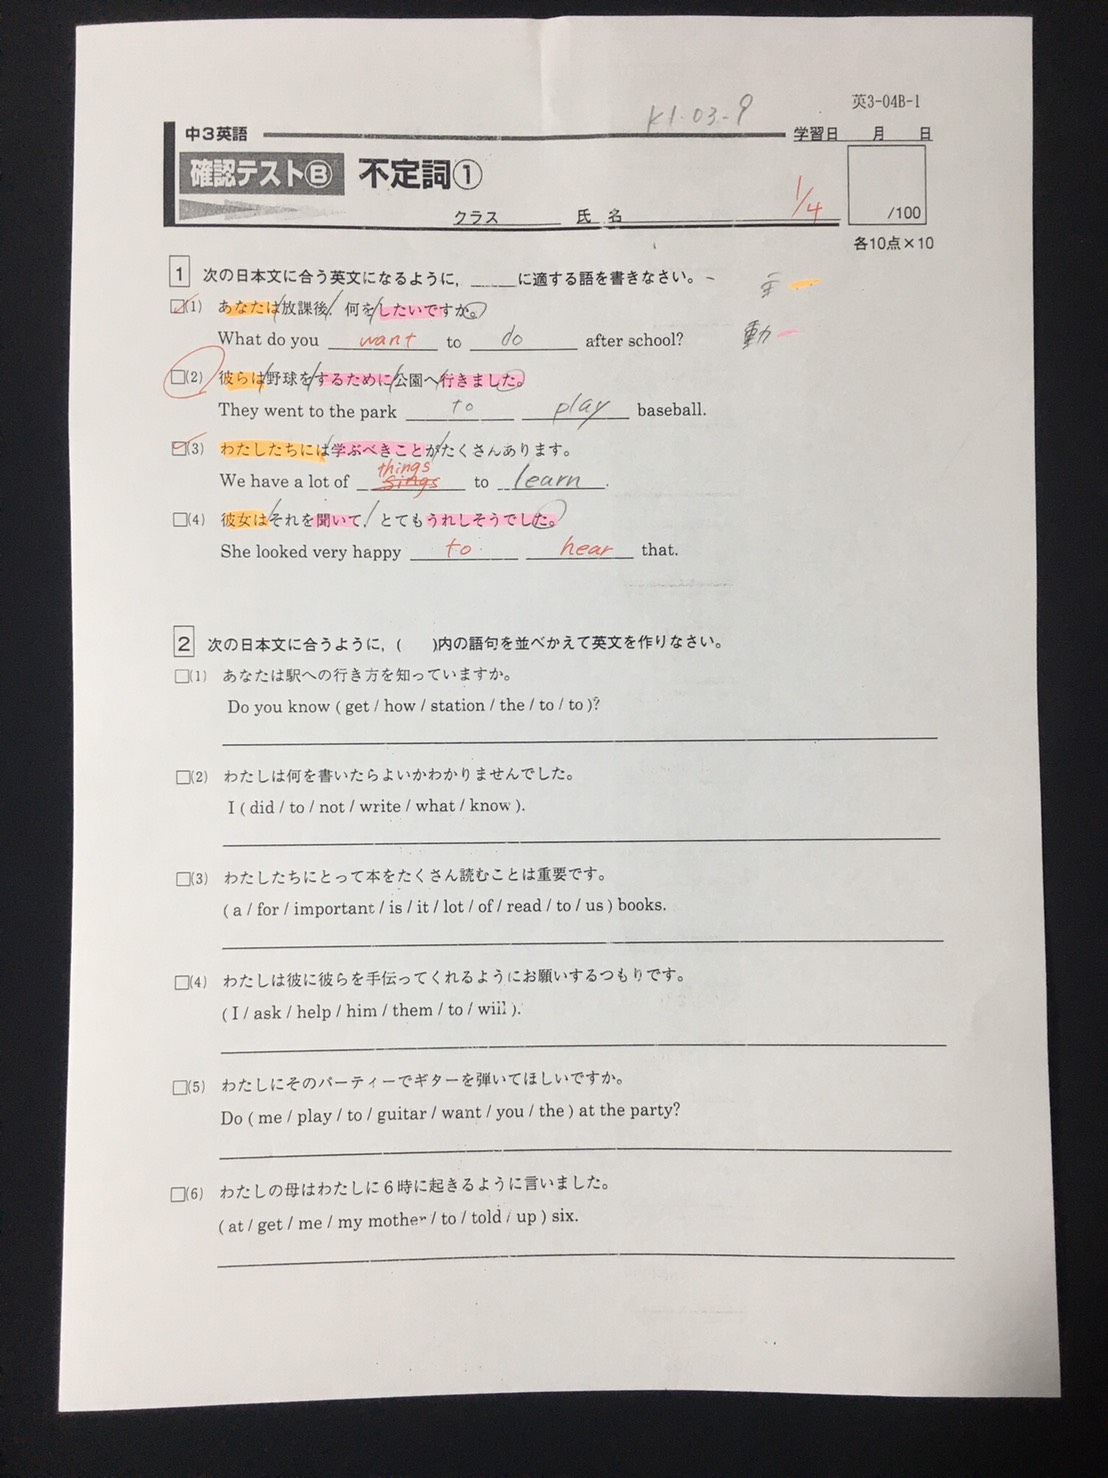 英3-04B-1
K1-03-9
中3英語
学習日 月 日
確認テストⒷ 不定詞①
クラス 氏名
1/4
/100
各10点×10
1 次の日本文に合う英文になるように，____に適する語を書きなさい。
主
□(1) あなたは/放課後/，何を/したいですか。
動
What do you want to do after school?
□(2) 彼らは/野球を/するために/公園へ/行きました。
They went to the park to play baseball.
□(3) わたしたちには/学ぶべきことが/たくさんあります。
things
We have a lot of sings to learn.
□(4) 彼女は/それを聞いて，/とてもうれしそうでした。
She looked very happy to hear that.
2 次の日本文に合うように，( )内の語句を並べかえて英文を作りなさい。
□(1) あなたは駅への行き方を知っていますか。
Do you know ( get / how / station / the / to / to )?
□(2) わたしは何を書いたらよいかわかりませんでした。
I ( did / to / not / write / what / know ).
□(3) わたしたちにとって本をたくさん読むことは重要です。
( a / for / important / is / it / lot / of / read / to / us ) books.
□(4) わたしは彼に彼らを手伝ってくれるようにお願いするつもりです。
( I / ask / help / him / them / to / will ).
□(5) わたしにそのパーティーでギターを弾いてほしいですか。
Do ( me / play / to / guitar / want / you / the ) at the party?
□(6) わたしの母はわたしに６時に起きるように言いました。
( at / get / me / my mother / to / told / up ) six.